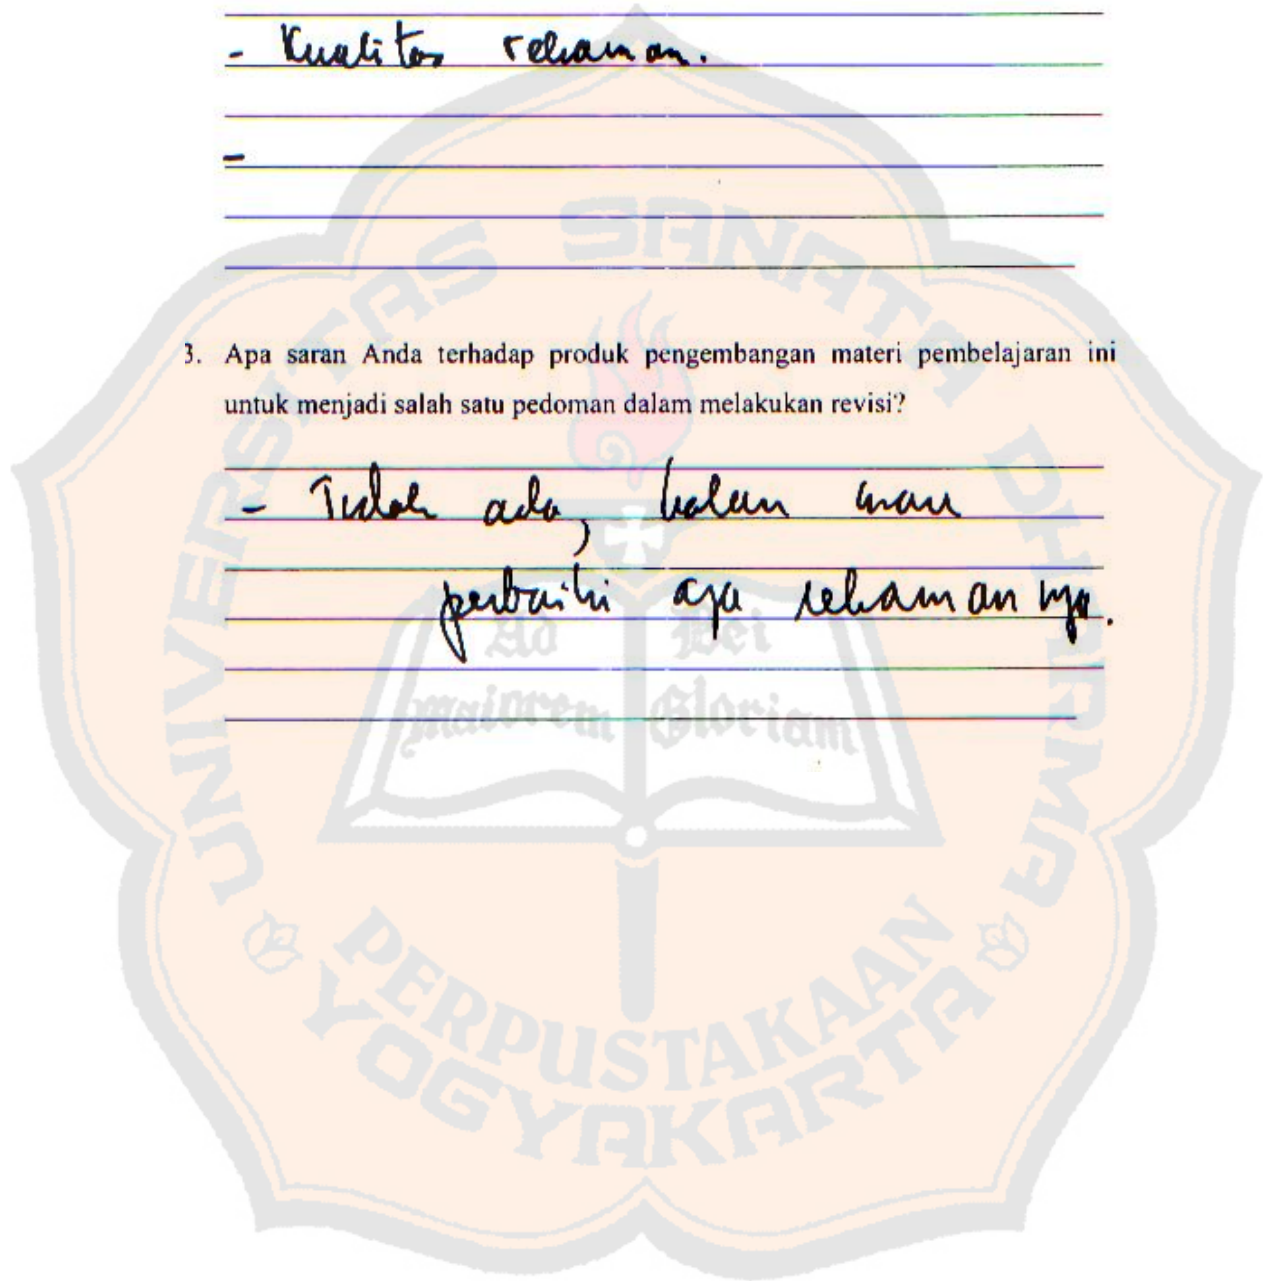 - Kualitas rekaman.
-
3. Apa saran Anda terhadap produk pengembangan materi pembelajaran ini
untuk menjadi salah satu pedoman dalam melakukan revisi?
- Tidak ada, kalau mau
perbaiki aja rekamannya.
UNIVERSITAS SANATA DHARMA
Ad Dei
maiorem Gloriam
PERPUSTAKAAN
YOGYAKARTA